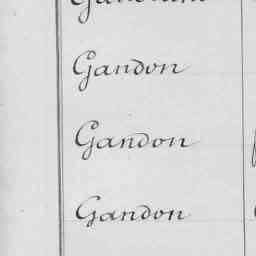 Gandon
Gandon
Gandon